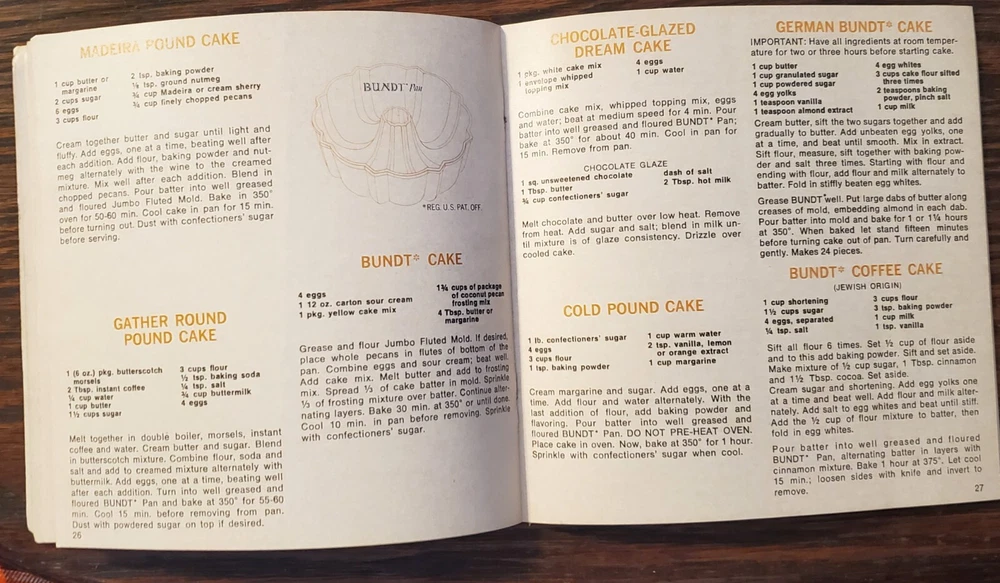 MADEIRA POUND CAKE
1 cup butter or
margarine
2 cups sugar
6 eggs
3 cups flour
2 tsp. baking powder
½ tsp. ground nutmeg
¾ cup Madeira or cream sherry
¾ cup finely chopped pecans
Cream together butter and sugar until light and
fluffy. Add eggs, one at a time, beating well after
each addition. Add flour, baking powder and nut-
meg alternately with the wine to the creamed
mixture. Mix well after each addition. Blend in
chopped pecans. Pour batter into well greased
and floured Jumbo Fluted Mold. Bake in 350°
oven for 50-60 min. Cool cake in pan for 15 min.
before turning out. Dust with confectioners' sugar
before serving.
GATHER ROUND
POUND CAKE
1 (6 oz.) pkg. butterscotch
morsels
2 Tbsp. instant coffee
¼ cup water
1 cup butter
1½ cups sugar
3 cups flour
½ tsp. baking soda
¼ tsp. salt
¾ cup buttermilk
4 eggs
Melt together in double boiler, morsels, instant
coffee and water. Cream butter and sugar. Blend
in butterscotch mixture. Combine flour, soda and
salt and add to creamed mixture alternately with
buttermilk. Add eggs, one at a time, beating well
after each addition. Turn into well greased and
floured BUNDT* Pan and bake at 350° for 55-60
min. Cool 15 min. before removing from pan.
Dust with powdered sugar on top if desired.
26
BUNDT* Pan
*REG. U.S. PAT. OFF.
BUNDT* CAKE
4 eggs
1 12 oz. carton sour cream
1 pkg. yellow cake mix
1¾ cups of package
of coconut pecan
frosting mix
4 Tbsp. butter or
margarine
Grease and flour Jumbo Fluted Mold. If desired,
place whole pecans in flutes of bottom of the
pan. Combine eggs and sour cream; beat well.
Add cake mix. Melt butter and add to frosting
mix. Spread ⅓ of cake batter in mold. Sprinkle
⅓ of frosting mixture over batter. Continue alter-
nating layers. Bake 30 min. at 350° or until done.
Cool 10 min. in pan before removing. Sprinkle
with confectioners' sugar.
CHOCOLATE-GLAZED
DREAM CAKE
1 pkg. white cake mix
1 envelope whipped
topping mix
4 eggs
1 cup water
Combine cake mix, whipped topping mix, eggs
and water; beat at medium speed for 4 min. Pour
batter into well greased and floured BUNDT* Pan;
bake at 350° for about 40 min. Cool in pan for
15 min. Remove from pan.
CHOCOLATE GLAZE
1 sq. unsweetened chocolate
1 Tbsp. butter
¾ cup confectioners' sugar
dash of salt
2 Tbsp. hot milk
Melt chocolate and butter over low heat. Remove
from heat. Add sugar and salt; blend in milk un-
til mixture is of glaze consistency. Drizzle over
cooled cake.
COLD POUND CAKE
1 lb. confectioners' sugar
4 eggs
3 cups flour
1 tsp. baking powder
1 cup warm water
2 tsp. vanilla, lemon
or orange extract
1 cup margarine
Cream margarine and sugar. Add eggs, one at a
time. Add flour and water alternately. With the
last addition of flour, add baking powder and
flavoring. Pour batter into well greased and
floured BUNDT* Pan. DO NOT PRE-HEAT OVEN.
Place cake in oven. Now, bake at 350° for 1 hour.
Sprinkle with confectioners' sugar when cool.
GERMAN BUNDT* CAKE
IMPORTANT: Have all ingredients at room temper-
ature for two or three hours before starting cake.
1 cup butter
1 cup granulated sugar
1 cup powdered sugar
4 egg yolks
1 teaspoon vanilla
1 teaspoon almond extract
4 egg whites
3 cups cake flour sifted
three times
2 teaspoons baking
powder, pinch salt
1 cup milk
Cream butter, sift the two sugars together and add
gradually to butter. Add unbeaten egg yolks, one
at a time, and beat until smooth. Mix in extract.
Sift flour, measure, sift together with baking pow-
der and salt three times. Starting with flour and
ending with flour, add flour and milk alternately to
batter. Fold in stiffly beaten egg whites.
Grease BUNDT* well. Put large dabs of butter along
creases of mold, embedding almond in each dab.
Pour batter into mold and bake for 1 or 1¼ hours
at 350°. When baked let stand fifteen minutes
before turning cake out of pan. Turn carefully and
gently. Makes 24 pieces.
BUNDT* COFFEE CAKE
(JEWISH ORIGIN)
1 cup shortening
1½ cups sugar
4 eggs, separated
¼ tsp. salt
3 cups flour
3 tsp. baking powder
1 cup milk
1 tsp. vanilla
Sift all flour 6 times. Set ½ cup of flour aside
and to this add baking powder. Sift and set aside.
Make mixture of ½ cup sugar, 1 Tbsp. cinnamon
and 1½ Tbsp. cocoa. Set aside.
Cream sugar and shortening. Add egg yolks one
at a time and beat well. Add flour and milk alter-
nately. Add salt to egg whites and beat until stiff.
Add the ½ cup of flour mixture to batter, then
fold in egg whites.
Pour batter into well greased and floured
BUNDT* Pan, alternating batter in layers with
cinnamon mixture. Bake 1 hour at 375°. Let cool
15 min.; loosen sides with knife and invert to
remove.
27